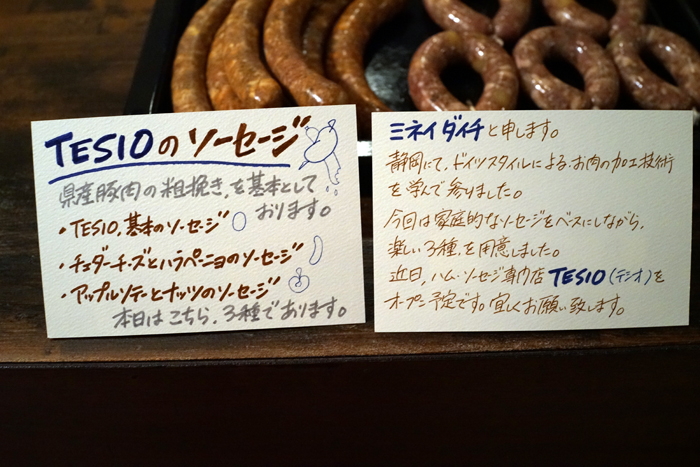 TESIOのソーセージ
県産豚肉の粗挽き、を基本として
おります。
・TESIO、基本のソーセージ
・チェダーチーズとハラペーニョのソーセージ
・アップルソテーとナッツのソーセージ
本日はこちら、3種であります。
ミネイダイチと申します。
静岡にて、ドイツスタイルによる、お肉の加工技術
を学んで参りました。
今回は家庭的なソーセージをベースにしながら、
楽しい3種、を用意しました。
近日、ハム・ソーセージ専門店 TESIO(テシオ)を
オープン予定です。宜しくお願い致します。